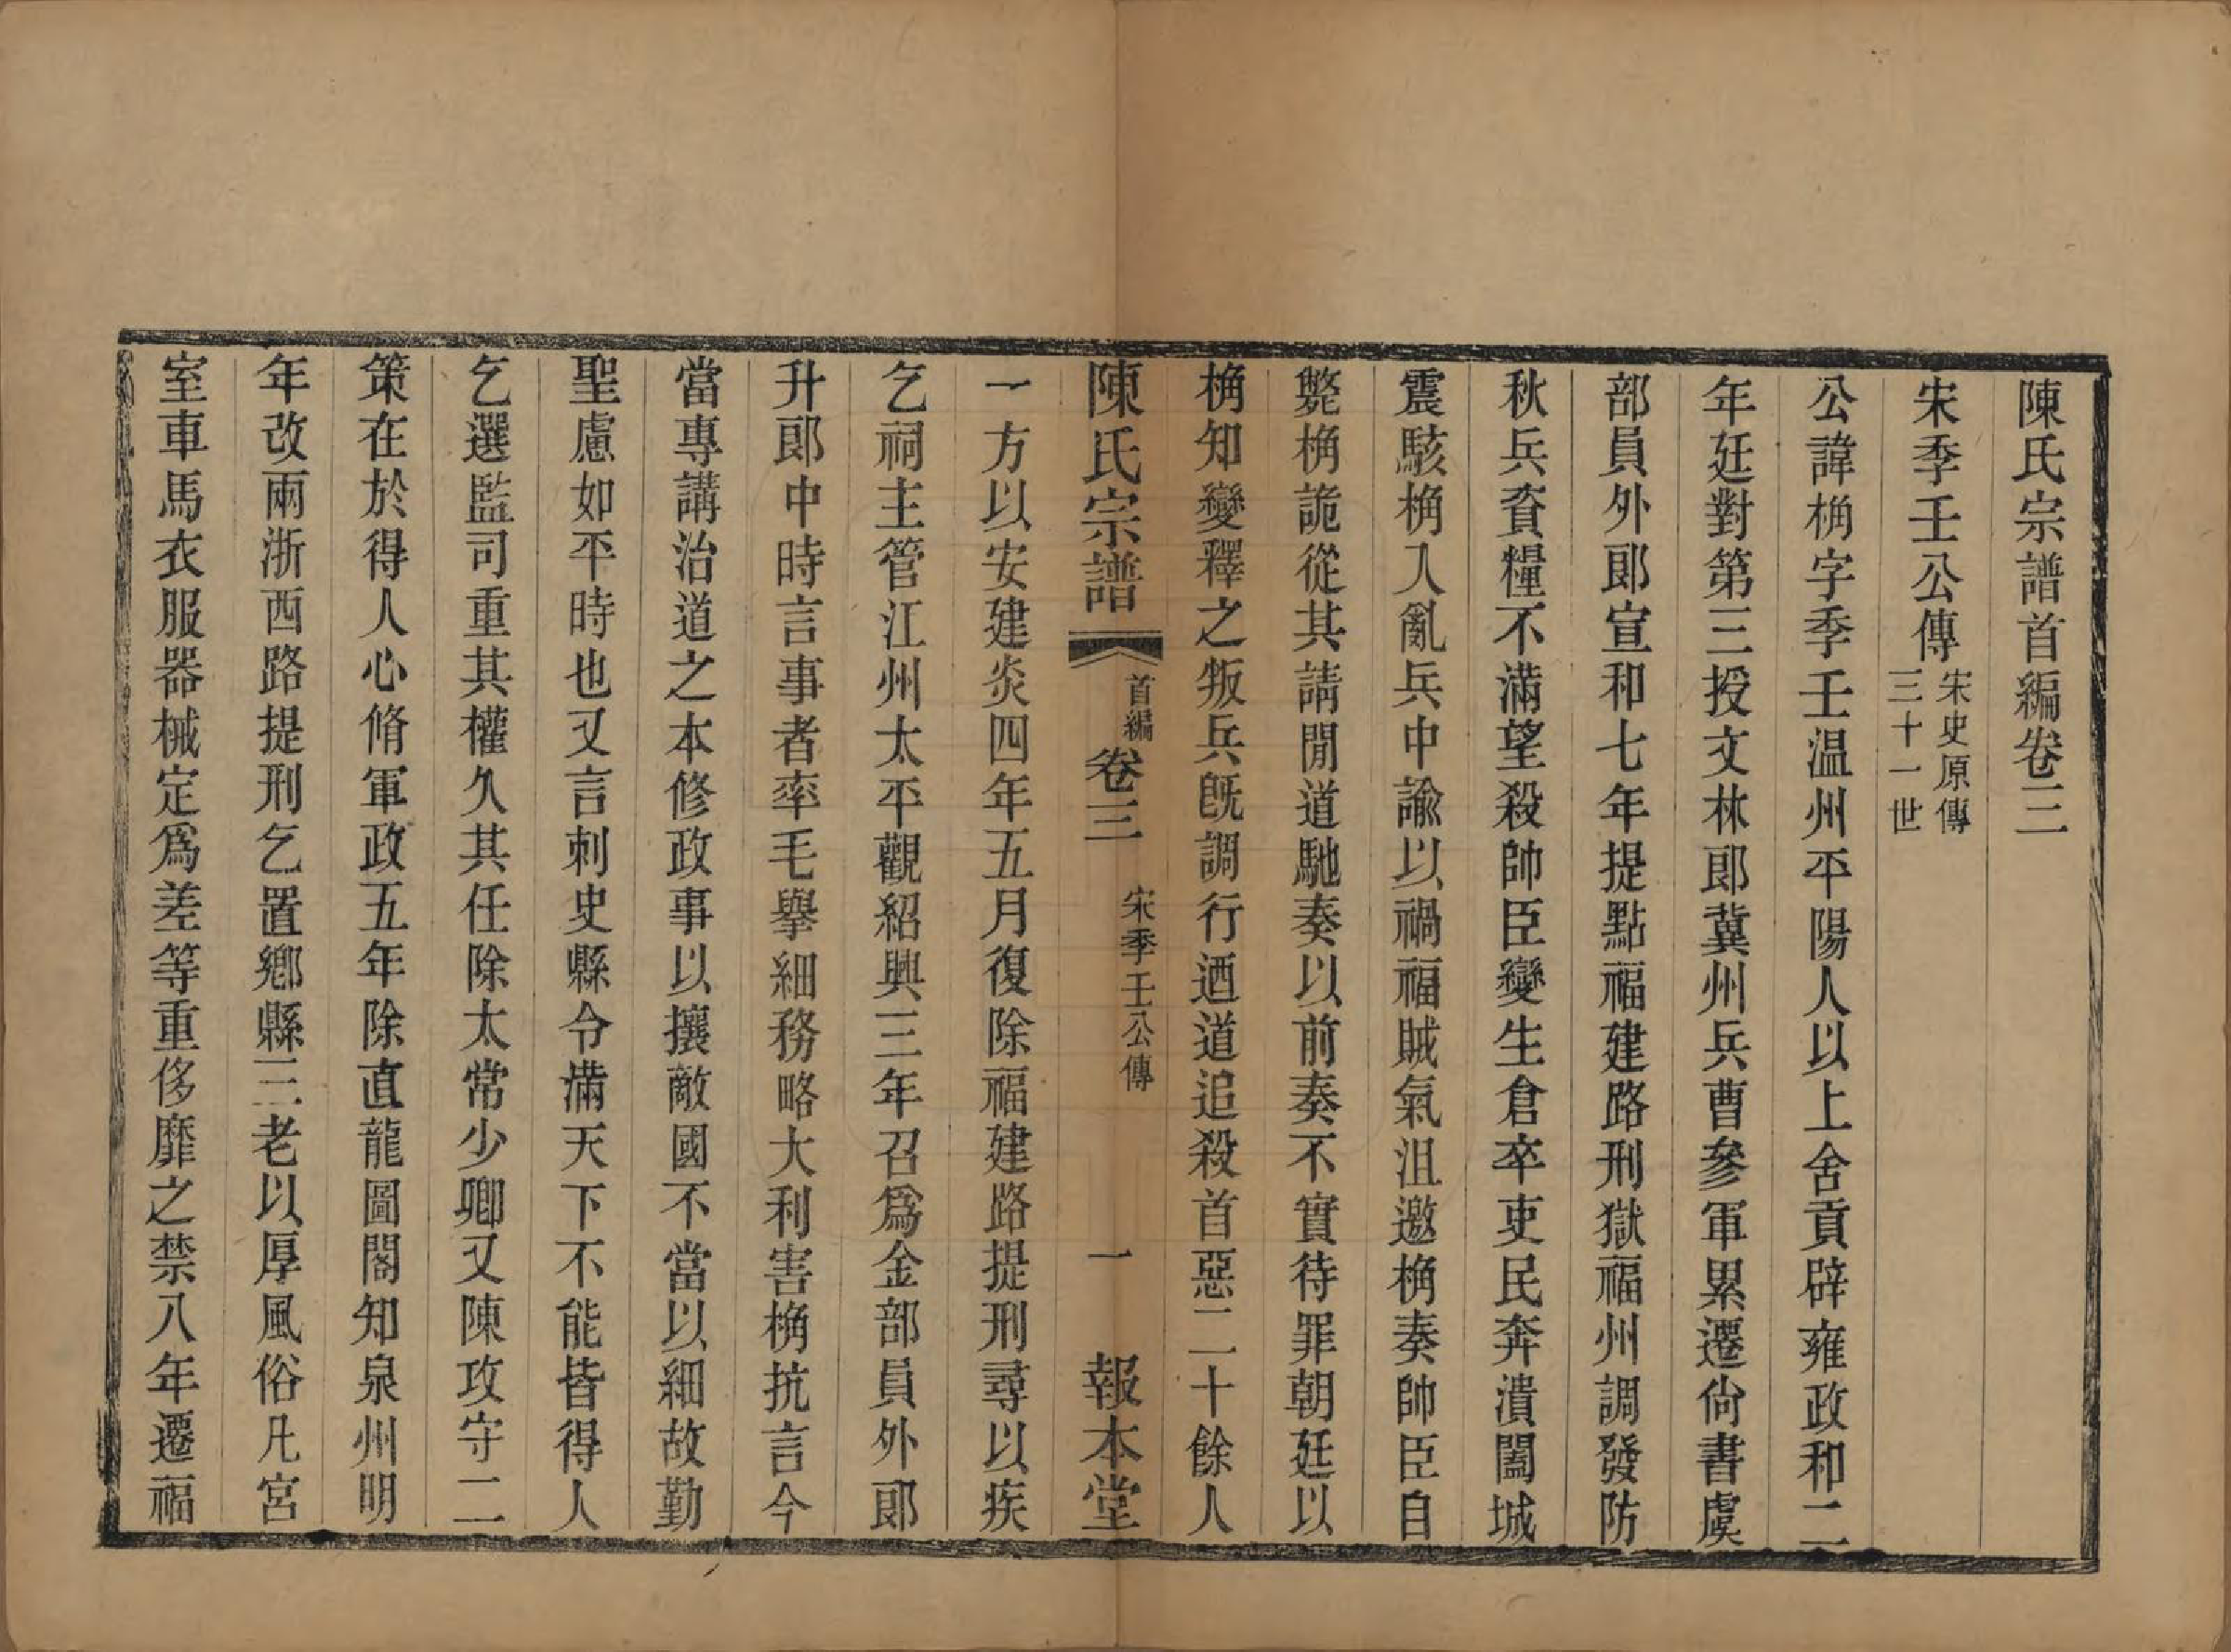 陳氏宗譜首編卷三
宋季壬公傳 宋史原傳
三十一世
公諱桷字季壬温州平陽人以上舍貢辟雍政和二
年廷對第三授文林郎冀州兵曹參軍累遷尙書虞
部員外郎宣和七年提點福建路刑獄福州調發防
秋兵資糧不滿望殺帥臣變生倉卒吏民奔潰闔城
震駭桷入亂兵中諭以禍福賊氣沮邀桷奏帥臣自
斃桷詭從其請閒道馳奏以前奏不實待罪朝廷以
桷知變釋之叛兵旣調行迺道追殺首惡二十餘人
陳氏宗譜 首編 卷三 宋季壬公傳 一 報本堂
一方以安建炎四年五月復除福建路提刑尋以疾
乞祠主管江州太平觀紹興三年召爲金部員外郎
升郎中時言事者率毛擧細務略大利害桷抗言今
當專講治道之本修政事以攘敵國不當以細故勤
聖慮如平時也又言刺史縣令滿天下不能皆得人
乞選監司重其權久其任除太常少卿又陳攻守二
策在於得人心脩軍政五年除直龍圖閣知泉州明
年改兩浙西路提刑乞置鄉縣三老以厚風俗凡宮
室車馬衣服器械定爲差等重侈靡之禁八年遷福